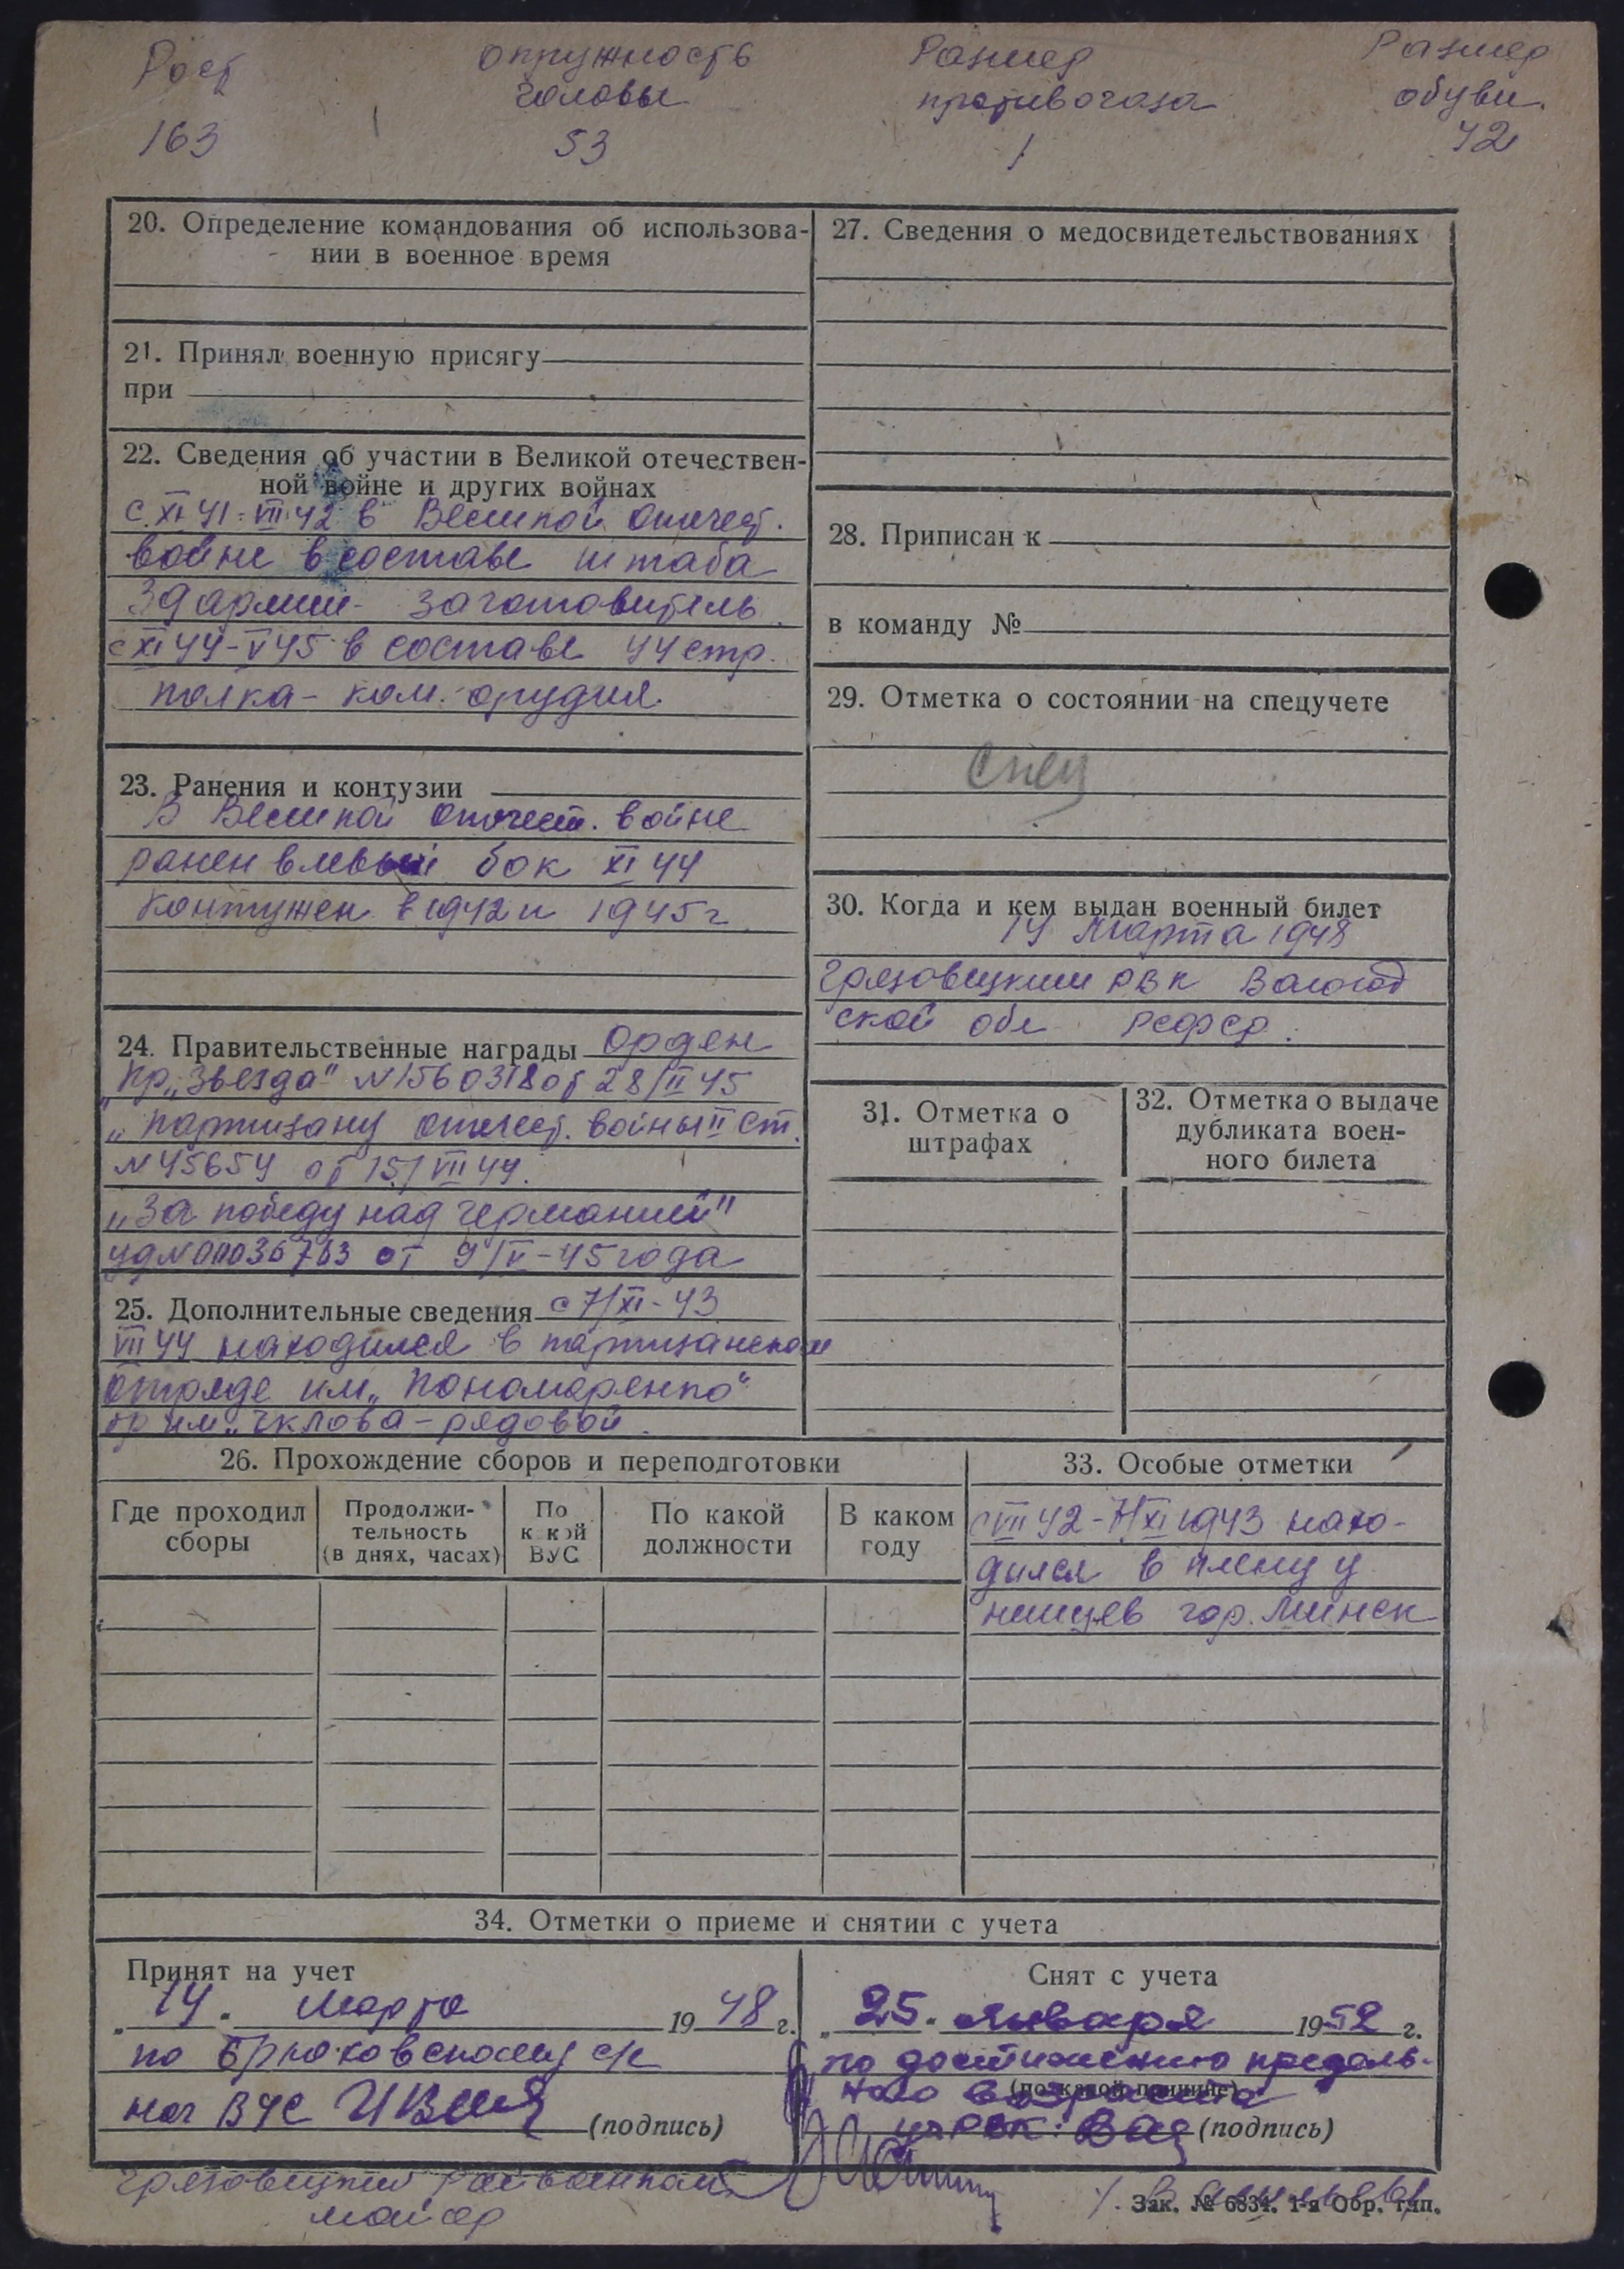 Рост
окружность
головы
Размер
противогаза
Размер
обуви
163
53
1
42
20. Определение командования об использова-
нии в военное время
21. Принял военную присягу
при
22. Сведения об участии в Великой отечествен-
ной войне и других войнах
с XI 41-VII 42 в Великой отечест.
войне в составе штаба
39 армии - заготовитель
с XI 44-V 45 в составе 44 стр.
полка - ком. орудия
23. Ранения и контузии
В Великой отечест. войне
ранен в левый бок XI 44
контужен в 1942 и 1945 г
24. Правительственные награды орден
"Кр. Звезда" N 1560318 от 28/II 45
"Партизану отечест. войны" II ст.
N 45654 от 15/VII 44.
"За победу над Германией"
уд N 0036763 от 9/V-45 года
25. Дополнительные сведения с 7/XI-43
VII 44 находился в партизанском
отряде им. "Пономаренко"
бр им. Чкалова - рядовой
26. Прохождение сборов и переподготовки
Где проходил
сборы
Продолжи-
тельность
(в днях, часах)
По
к кой
ВУС
По какой
должности
В каком
году
27. Сведения о медосвидетельствованиях
28. Приписан к
в команду №
29. Отметка о состоянии на спецучете
Спец
30. Когда и кем выдан военный билет
14 марта 1948
Грязовецким РВК Вологод
ской обл. РСФСР.
31. Отметка о
штрафах
32. Отметка о выдаче
дубликата воен-
ного билета
33. Особые отметки
с VII 42-7/XI 1943 нахо-
дился в плену у
немцев гор. Минск
34. Отметки о приеме и снятии с учета
Принят на учет
„14" марта 1948 г.
по Брюховскому с/с
нач ВУС (подпись)
Грязовецкий райвоенком
майор
Снят с учета
„25" января 1952 г.
по достижению предель-
ного возраста
(по какой причине)
(подпись)
Зак. № 6834. 1-я Обр. тип.